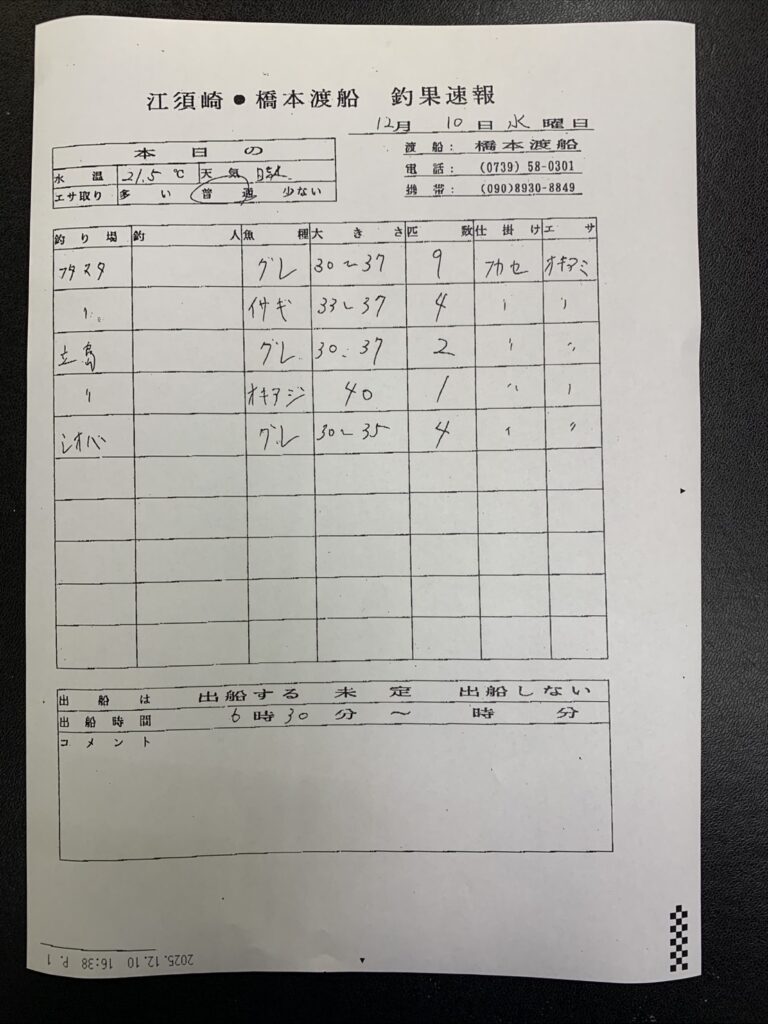 江須崎●橋本渡船 釣果速報
12月 10日 水曜日
渡船: 橋本渡船
電話: (0739) 58-0301
携帯: (090)8930-8849
本日の
水温 21.5℃ 天気 晴
エサ取り 多い 普通 少ない
釣り場 釣人 魚種 大きさ 匹数 仕掛け エサ
フタスタ グレ 30〜37 9 フカセ オキアミ
〃 イサギ 33〜37 4 〃 〃
立島 グレ 30〜37 2 〃 〃
〃 オキアジ 40 1 〃 〃
シオバ グレ 30〜35 4 〃 〃
出船は 出船する 未定 出船しない
出船時間 6時30分 〜 時 分
コメント
2025.12.10 16:38 P. 1